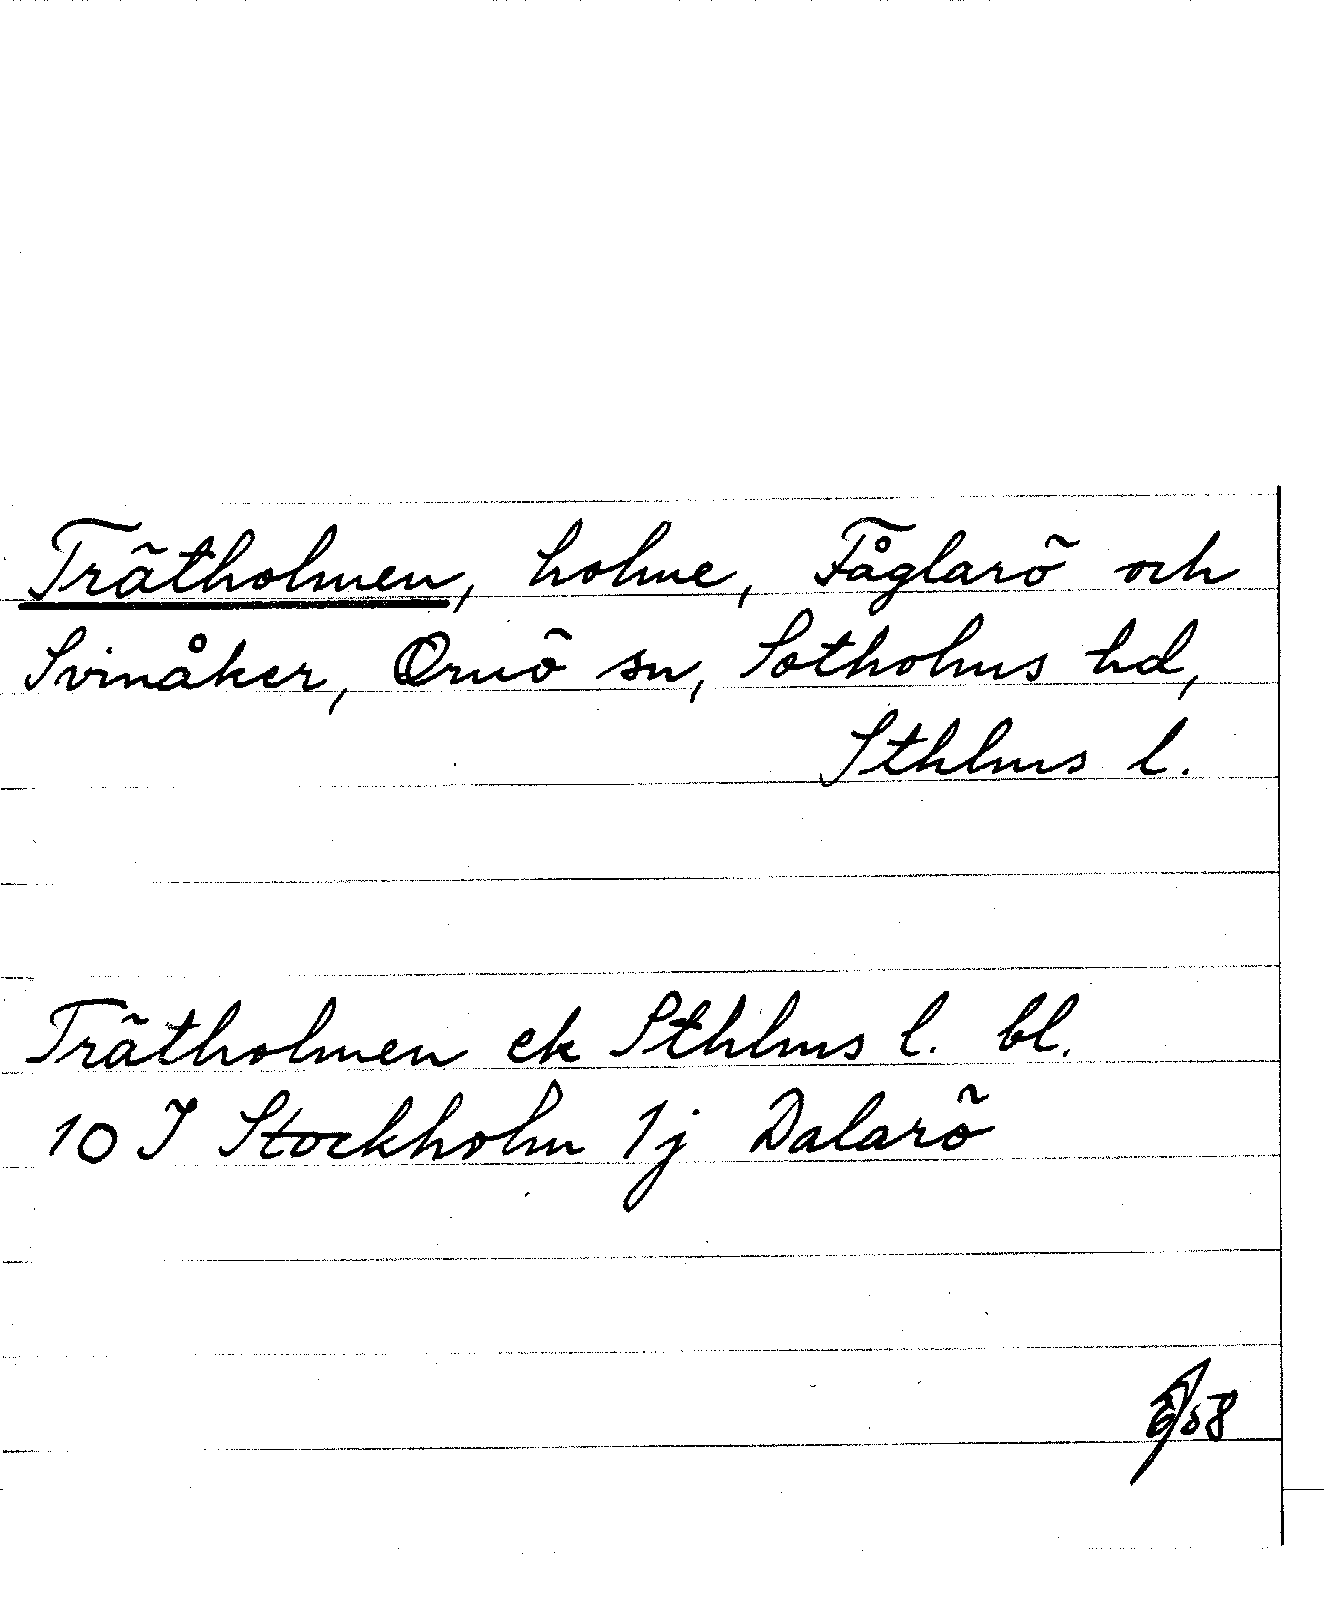 Trätholmen, holme, Fåglarö och
Svinåker, Ornö sn, Sotholms hd,
Sthlms l.
Trätholmen ek Sthlms l. bl.
10 J Stockholm 1j Dalarö